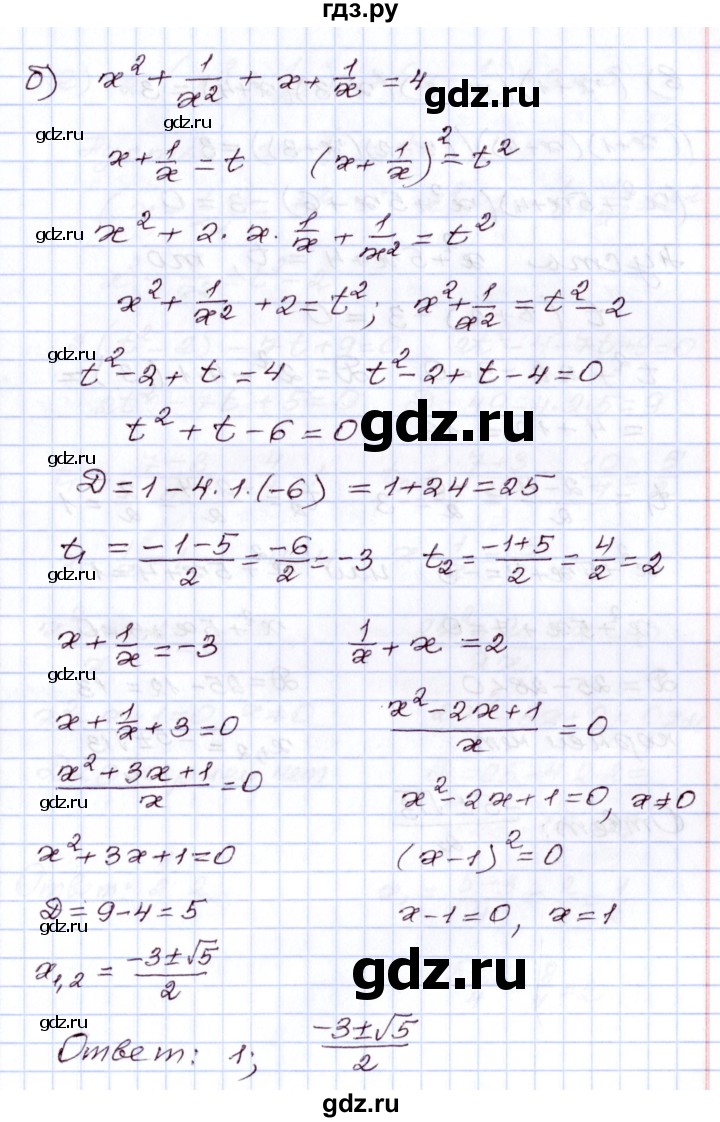 гдз.ру
б) x² + 1/x² + x + 1/x = 4
gdz.ru
gdz.ru gdz.ru
x + 1/x = t (x + 1/x)² = t²
gdz.ru x² + 2 · x · 1/x + 1/x² = t²
x² + 1/x² + 2 = t²; x² + 1/x² = t² - 2
gdz.ru
t² - 2 + t = 4 t² - 2 + t - 4 = 0
t² + t - 6 = 0 gdz.ru
gdz.ru
D = 1 - 4 · 1 · (-6) = 1 + 24 = 25
t₁ = (-1-5)/2 = -6/2 = -3 t₂ = (-1+5)/2 = 4/2 = 2
gdz.ru
x + 1/x = -3 1/x + x = 2
gdz.ru
x + 1/x + 3 = 0 (x² - 2x + 1)/x = 0
(x² + 3x + 1)/x = 0
gdz.ru x² - 2x + 1 = 0, x ≠ 0
x² + 3x + 1 = 0 (x - 1)² = 0
D = 9 - 4 = 5 x - 1 = 0, x = 1
gdz.ru
x₁,₂ = (-3 ± √5)/2 gdz.ru
gdz.ru
Ответ: 1; (-3 ± √5)/2
gdz.ru